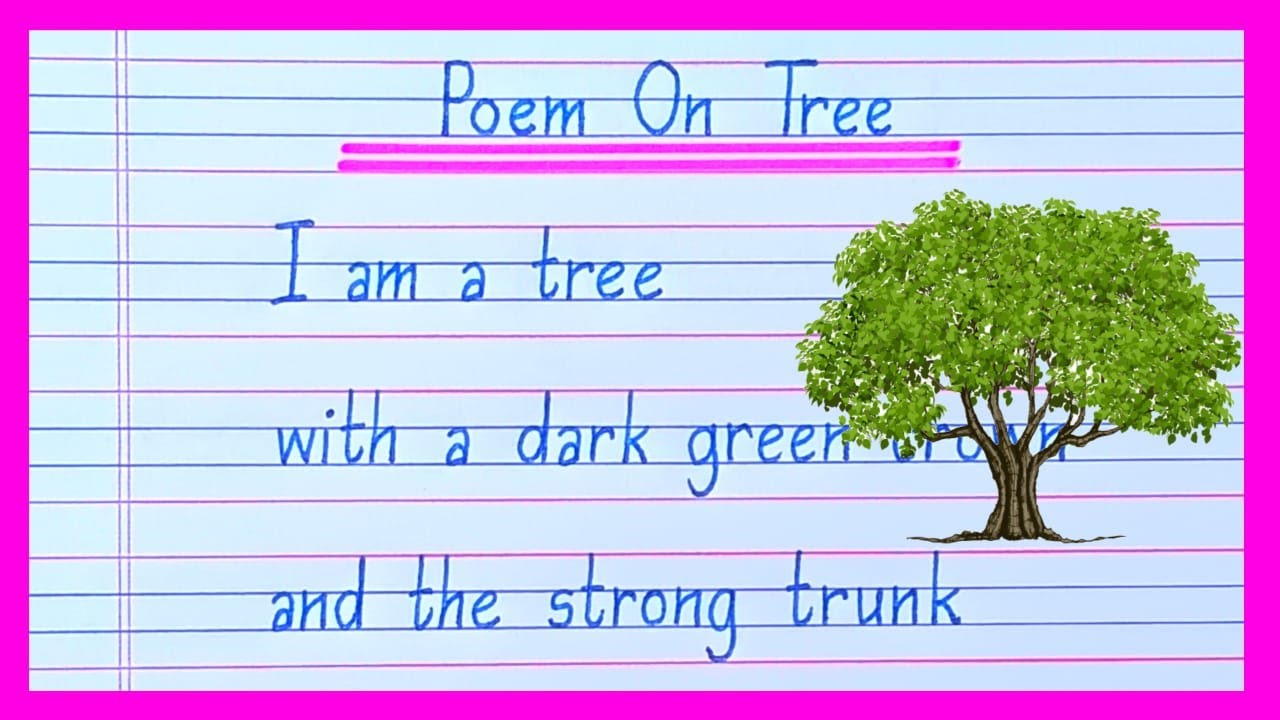 Poem On Tree
I am a tree
with a dark green crown
and the strong trunk